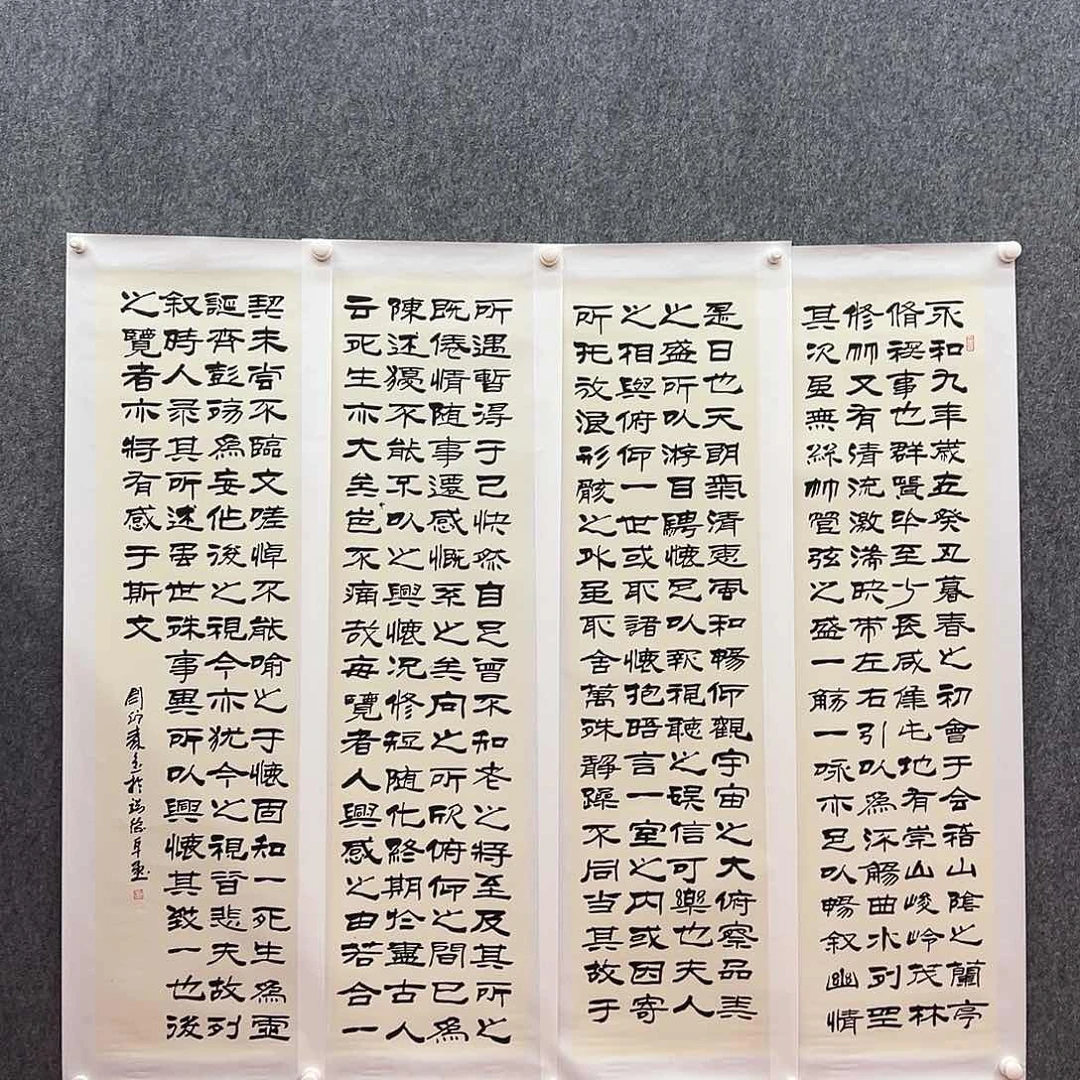 永和九年歲在癸丑暮春之初會于会稽山陰之蘭亭
脩禊事也群賢毕至少長咸集此地有崇山峻岭茂林
修竹又有清流激湍映带左右引以為流觴曲水列坐
其次虽無絲竹管弦之盛一觴一咏亦足以暢叙幽情
是日也天朗氣清惠風和暢仰觀宇宙之大俯察品类
之盛所以游目騁懷足以極視聽之娱信可樂也夫人
之相與俯仰一世或取諸懷抱晤言一室之内或因寄
所托放浪形骸之外虽取舍萬殊靜躁不同当其故于
所遇暫得于己快然自足曾不知老之将至及其所之
既倦情随事遷感慨系之矣向之所欣俯仰之間已為
陳迹猶不能不以之興懷况修短随化終期於盡古人
云死生亦大矣岂不痛哉每覽者人興感之由若合一
契未尝不臨文嗟悼不能喻之于懷固知一死生為虚
誕齊彭殤為妄作後之視今亦犹今之視昔悲夫故列
叙時人录其所述虽世殊事異所以興懷其致一也後
之覽者亦将有感于斯文